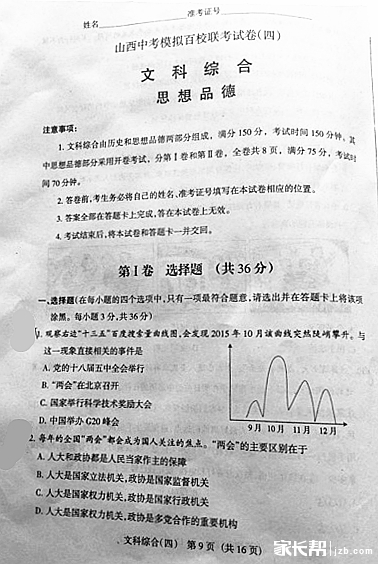 准考证号
姓名
山西中考模拟百校联考试卷(四)
文科综合
思想品德
注意事项:
1. 文科综合由历史和思想品德两部分组成，满分 150 分，考试时间 150 分钟。其
中思想品德部分采用开卷考试，分第Ⅰ卷和第Ⅱ卷，全卷共 8 页，满分 75 分，考试时
间 70 分钟。
2. 答卷前,考生务必将自己的姓名、准考证号填写在本试卷相应的位置。
3. 答案全部在答题卡上完成,答在本试卷上无效。
4. 考试结束后,将本试卷和答题卡一并交回。
第Ⅰ卷 选择题 (共 36 分)
一、选择题(在每小题的四个选项中,只有一项最符合题意,请选出并在答题卡上将该项
涂黑。每小题 3 分,共 36 分)
1. 观察右边“十三五”百度搜索量曲线图,会发现 2015 年 10 月该曲线突然陡峭攀升。与
这一现象直接相关的事件是
A. 党的十八届五中全会举行
B. “两会”在北京召开
C. 国家举行科学技术奖励大会
D. 中国举办 G20 峰会
9月 10月 11月 12月
2. 每年的全国“两会”都会成为国人关注的焦点。“两会”的主要区别在于
A. 人大和政协都是人民当家作主的保障
B. 人大是国家立法机关,政协是国家监督机关
C. 人大是国家权力机关,政协是国家行政机关
D. 人大是国家权力机关,政协是多党合作的重要机构
文科综合(四) 第 9 页 (共 16 页)
家长帮
jzb.com